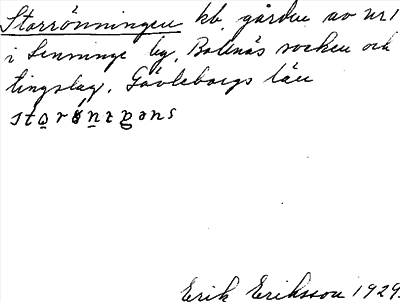 Storrönningen kb. gården av nr 1
i Lenninge by, Bollnäs socken och
tingslag, Gävleborgs län
Erik Eriksson 1929.